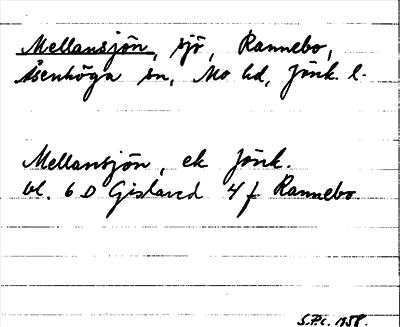 Mellansjön, sjö, Rannebo,
Åsenhöga sn, Mo hd, Jönk. l.
Mellansjön, ek Jönk.
bl. 6 D Gislaved 4 f Rannebo.
S.P.c. 1958.